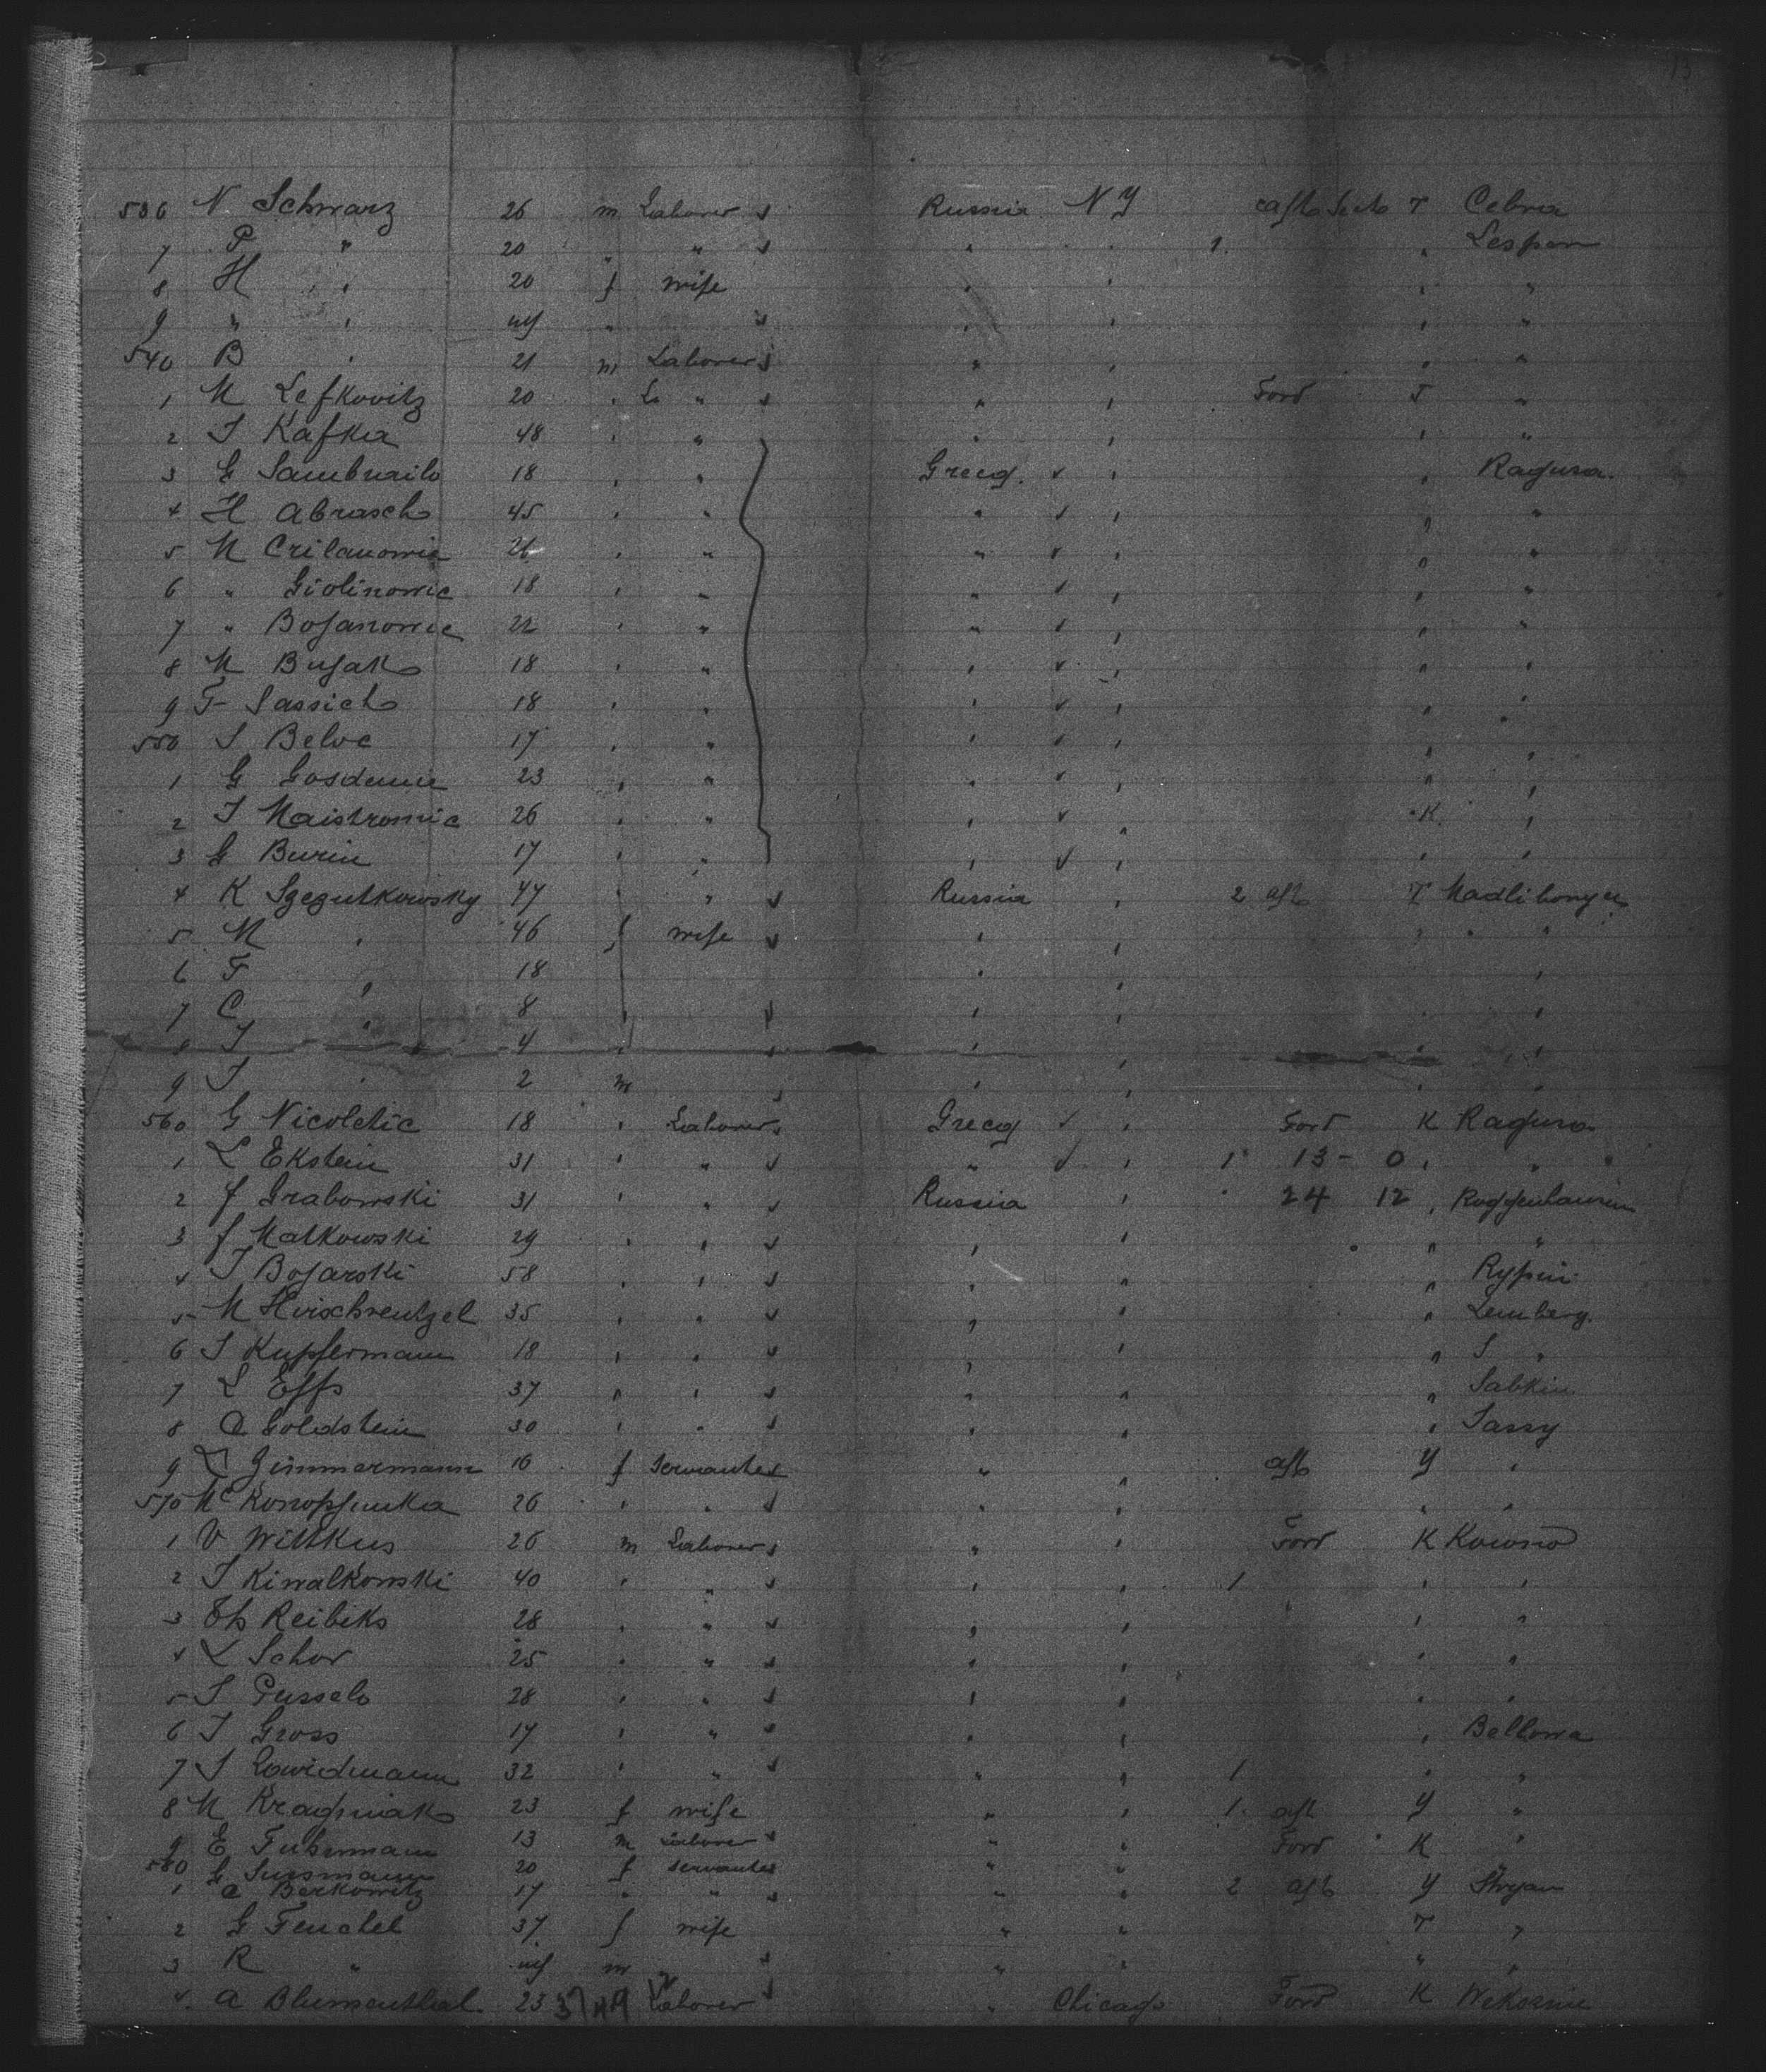 13
536 N Schwarz 26 m Laborer s Russia N Y aft T Cebra
7 P " 20 " " s " " 1. " Lespen
8 H " 20 f wife " " " "
9 " " inf " s " " " "
540 B " 21 m Laborer s " " " "
1 M Lefkovitz 20 " La " s " " Ford T "
2 J Kafka 48 " " " " " "
3 G Sambrailo 18 " " Grecq. v " " Ragusa.
4 H Abrasch 45 " " " v " " "
5 M Crilanowic " " " v " " "
6 " Giolinowic 18 " " " v " " "
7 " Bojanowic 22 " " " v " " "
8 M Bujak 18 " " " v " " "
9 F Sassich 18 " " " v " " "
550 S Beloc 17 " " " v " " "
1 G Gosdenic 23 " " " v " " "
2 J Maistrowic 26 " " " v " K "
3 G Burin 17 " " " v " " "
4 K Szegutkowsky 47 " " s Russia " 2 aft T
5 M " 46 f wife s " " " " "
6 F " 18 " " "
7 C " 8 s " " " "
8 J " 4 " s " " " "
9 J " 2 m s " " " "
560 G Nicoletic 18 " Laborer s Grecq v " Ford K Ragusa
1 L Ekstein 31 " " s " v " 1 13 - 0 " "
2 J Grabowski 31 " " s Russia " 24 12 "
3 J Malkowski 29 " " s " " " "
4 J Bojarski 58 " " s " " " Rypin
5 M Hirschrentzel 35 " " s " " " Lemberg.
6 J Kupfermann 18 " " s " " " "
7 L Effs 37 " " s " " " Sabkin
8 C Goldstein 30 " " s " " " Jassy
9 Zimmermann 16 f Servante s " " aft Y "
570 Konopjunka 26 " " s " " " "
1 V Wittkus 26 m Laborer s " " Ford K Kowno
2 J Kiwalkowski 40 " " s " " 1 " "
3 Th Reibiks 28 " " s " " " "
4 L Schor 25 " " s " " " "
5 J Gussel 28 " " s " " " "
6 J Gross 17 " " s " " " Bellowa
7 J Lawidmann 32 " " s " " 1 " "
8 M Kragsniak 23 f wife " " 1. aft Y "
9 E Fuhrmann 13 m Laborer s " " Ford K "
580 G Sussmann 20 f servante s " " "
1 C Berkowitz 17 " " s " " 2 aft Y Stryan
2 G Fenchel 37. f wife " " T "
3 R " inf m s " " " "
4. A Blumenthal 23 Laborer s " Chicago Ford K